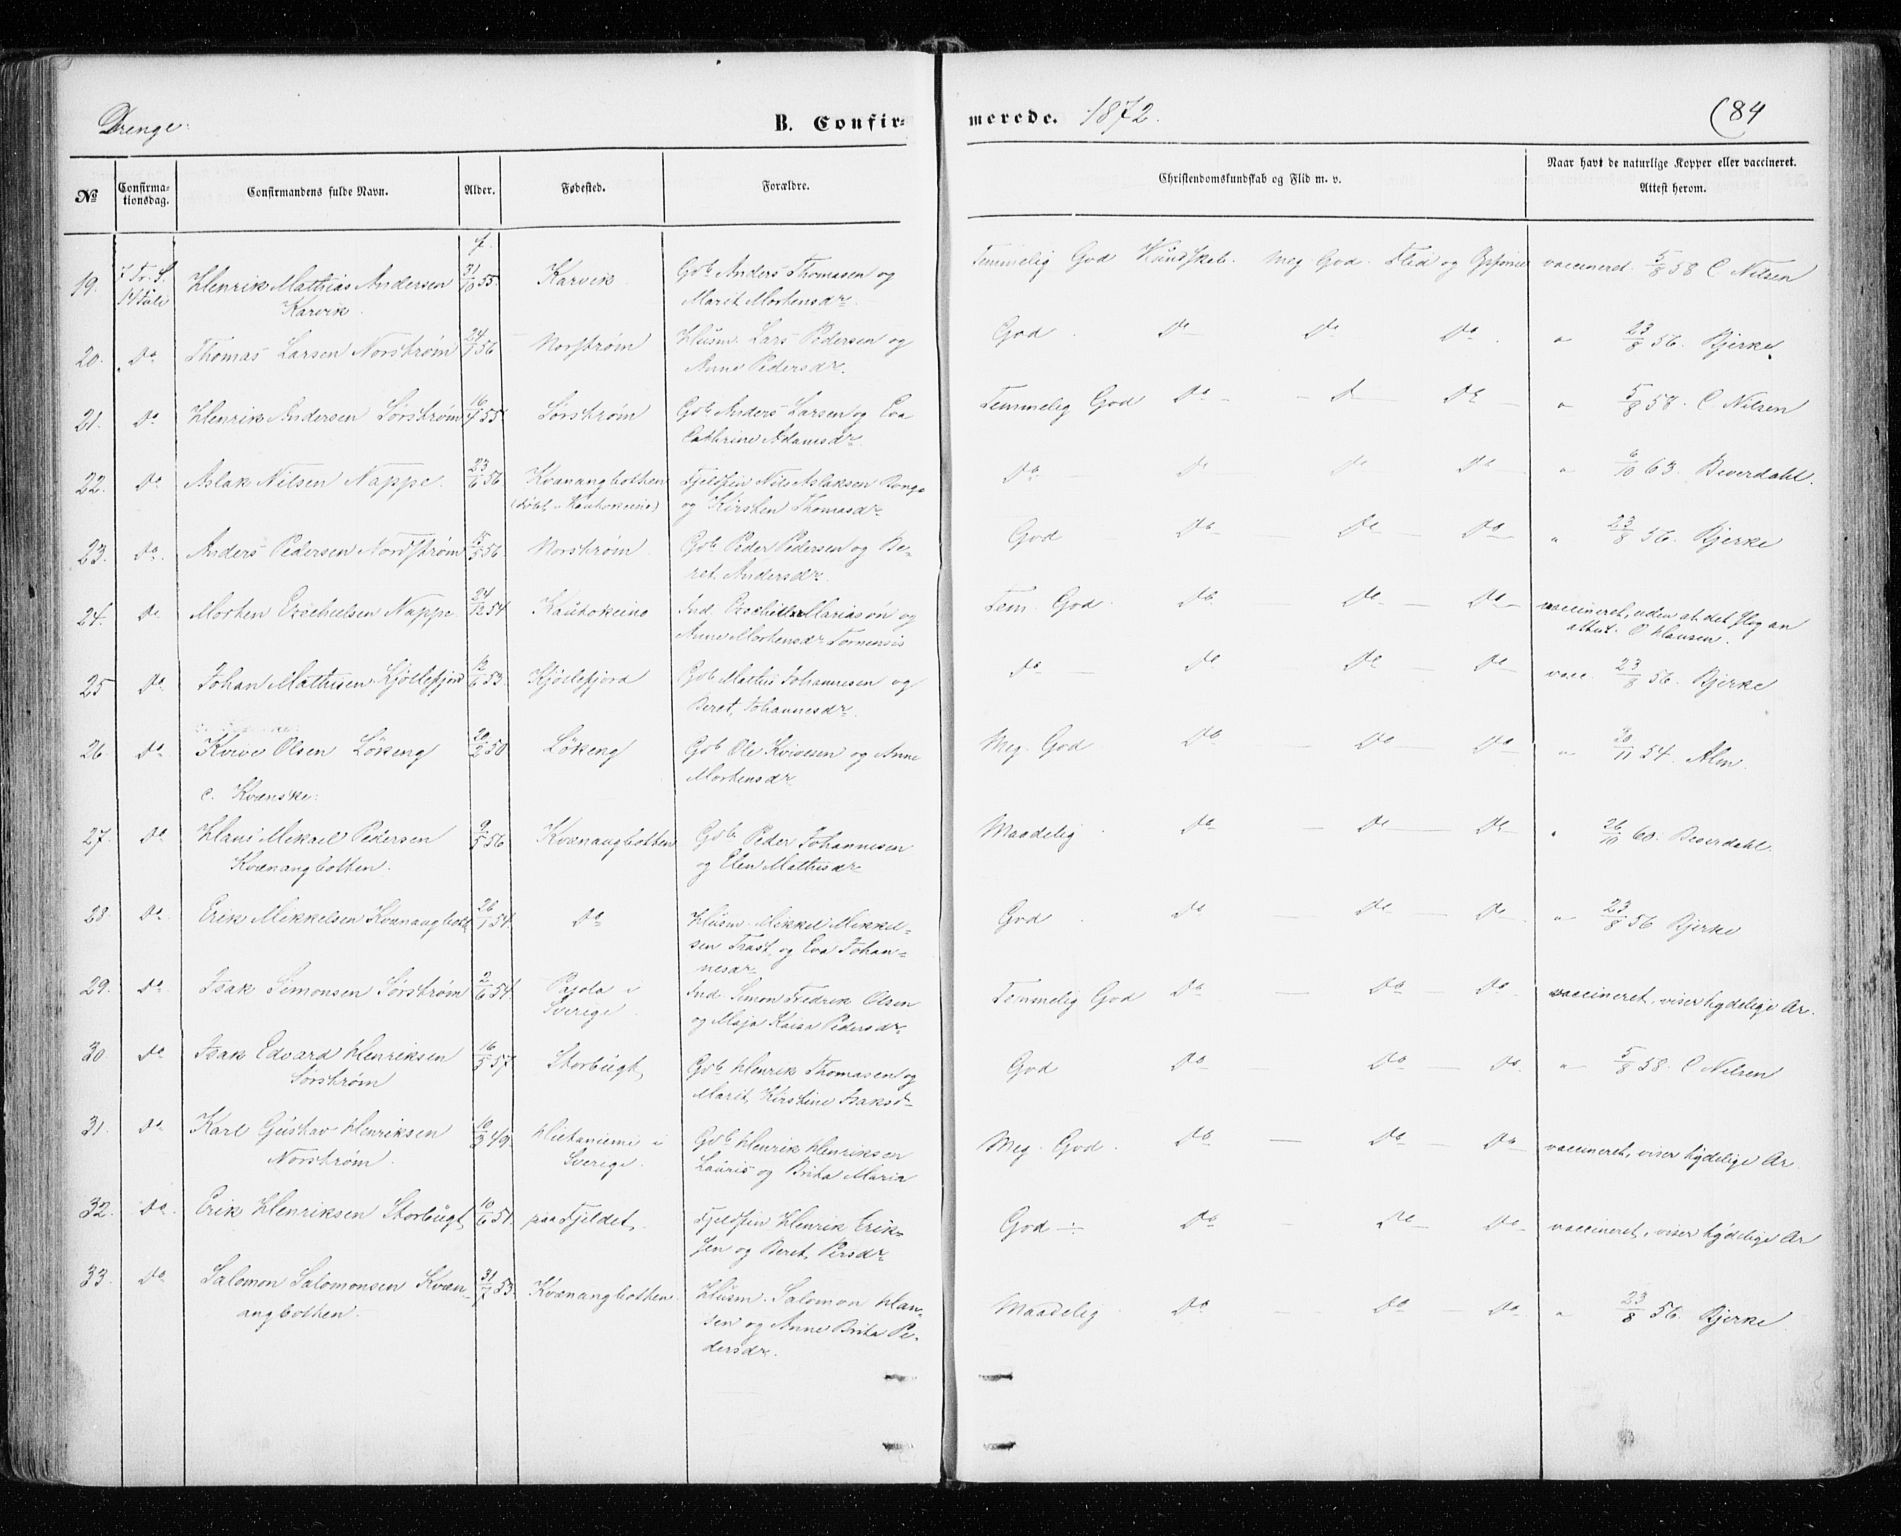 Drenge: B. Confirmerede. 1872. 84
No Confirmationsdag. Confirmandens fulde Navn. Alder. Fødested. Forældre. Christendomskundskab og Flid m. v. Naar havt de naturlige Kopper eller vaccineret. Attest herom.
19. Henrik Mathias Andersen 31/10 55 Karvik Gbr Anders Thomasen og Temmelig God Kundskab. Meg God. Flid og vaccineret 5/8 58 C Nilsen
14 Juli Karvik. Marit Mortensdr.
20. Do Thomas Larsen Norstrøm 56 Norstrøm Husm. Lars Pedersen og God Do Do Do " 23/8 56. Bjerke.
Anne Pedersdr.
21. Do Henrik Andersen Sørstrøm 16/7 55 Sørstrøm Gbr Anders Larsen og Eva Temmelig God Do D Do " 5/8 58. C Nilsen
Cathrine Adamsdr.
22. Do Aslak Nilsen Nappe. 23/6 56 Kvænangbotten Fjeldfin Nils Aslaksen Bongo Do Do Do Do " 6/10 63. Beverdahl.
(døbt i Kautokeino) og Kirsten Thomasdr
23. Do. Anders Pedersen Nordstrøm 56 Norstrøm Gbr Peder Pedersen og Be- God Do Do Do " 23/8 56. Bjerke
ret Andersdr.
24. Do Morten Esechielsen Nappe. 24/12 54 Kautokeino Ind. Esechiel Mariasøn og Tem. God. Do Do Do vaccineret, uden at det slog an
Anne Mortensdr Tornensis attest. C Hansen.
25 Do. Johan Mathisen Kjøllefjord 12/6 53. Kjøllefjord Gbr Mathis Johannesen og Do Do Do Do vacc. 23/8 56. Bjerke
Beret Johannesdr.
26. Do. Kvive Olsen Løkeng 20/2 50 Løkeng Gbr Ole Kvivesen og Anne Meg. God Do Do Do " 20/11 54. Alm.
Mortensdr
c. Kvænske:
27. Do Hans Mikael Pedersen 9/5 56. Kvænangbotten Gbr Peder Johannesen Maadelig Do Do Do " 26/10 60. Beverdahl.
Kvænangbotten. og Elen Mathisdr
28. Do Erik Mikkelsen Kvænangbott 26/1 54. Do Husm. Mikkel Mikkel- God Do Do Do " 23/8 56 Bjerke
sen Trast og Eva Johan-
nesdr
29. Do Isak Simonsen Sørstrøm 2/6 54. Pajala i Ind. Simon Fredrik Olsen Temmelig God Do Do Do vaccineret, viser tydelige Ar.
Sverige. og Maja Kaisa Pedersdr
30. Do Isak Edvard Henriksen 16/5 57 Storbugt Gbr Henrik Thomasen og God Do Do Do " 5/8 58. C Nilsen
Sørstrøm Marit Kirstine Isaksd
31. Do Karl Gustav Henriksen 10/3 49 Hietaniemi i Gbr Henrik Henriksen Meg. God. Do Do Do vaccineret, viser tydelige Ar.
Norstrøm. Sverige. Lauris og Brita Maria
32. Do. Erik Henriksen Storbugt 10/6 51. paa Fjeldet, Fjeldfin Henrik Erik- God Do Do Do vaccineret, viser tydelige Ar
sen og Beret Persdr
33. Do Salomon Salomonsen Kvæn- 53. Kvænangbotten. Husm. Salomon Han- Maadelig Do Do Do " 23/8 56. Bjerke.
angbotten. sen og Anne Brita Pe-
dersdr.